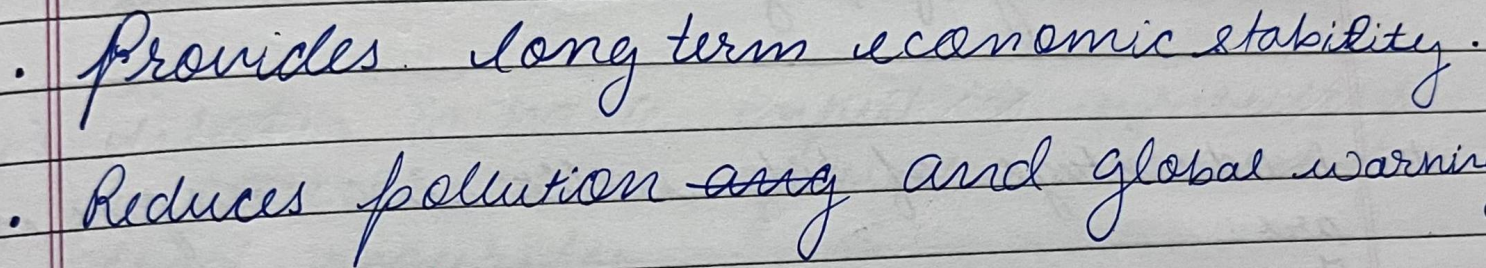 . Provides long term economic stability.
. Reduces pollution ang and global warnin